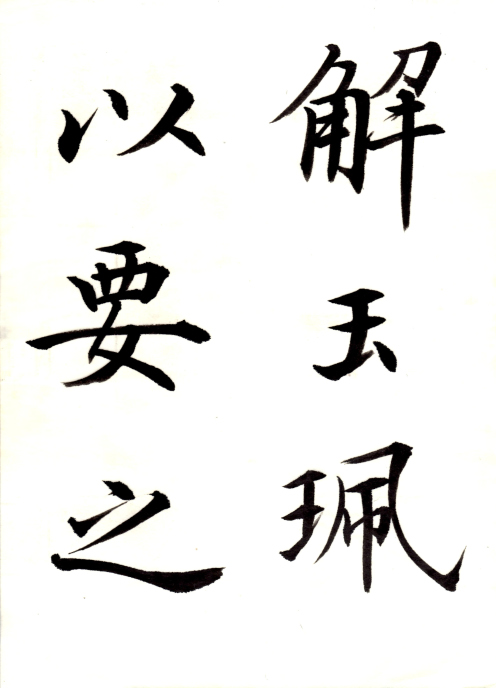 解玉珮
以要之